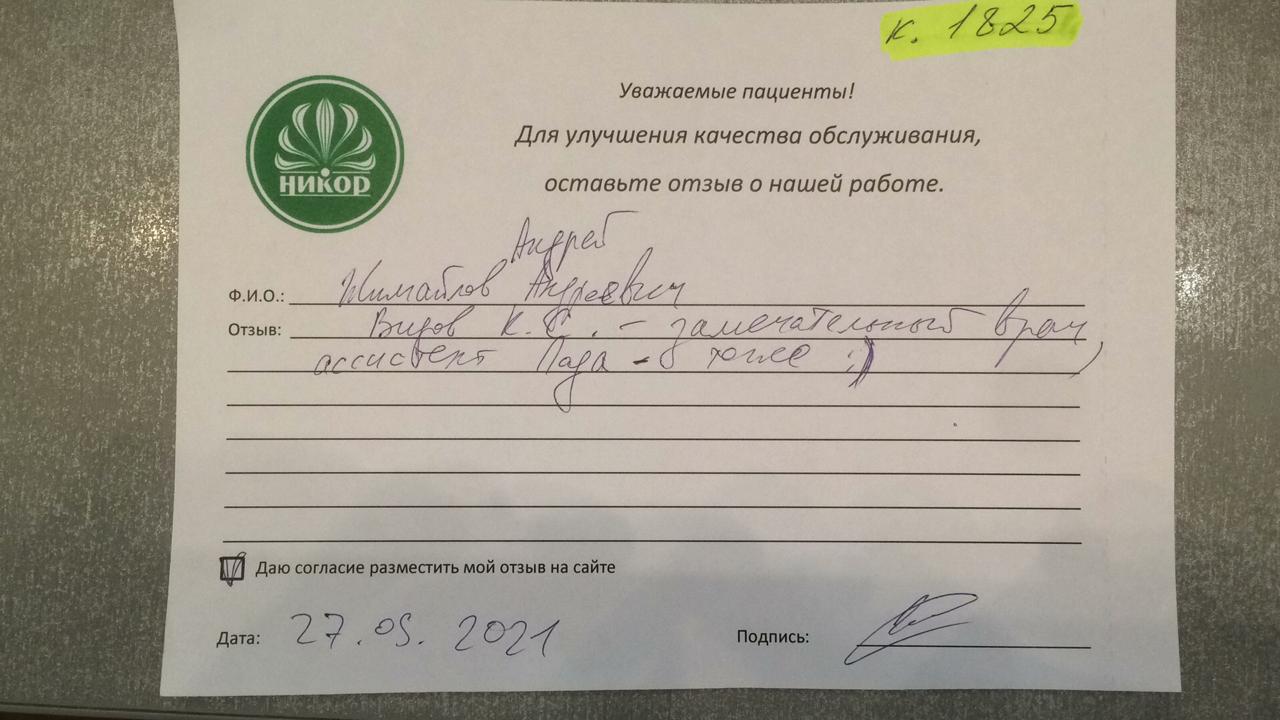 к. 1825
никор
Уважаемые пациенты!
Для улучшения качества обслуживания,
оставьте отзыв о нашей работе.
Андрей
Ф.И.О.: Андреевич
Отзыв: К.С. - замечательный врач,
ассистент - тоже :)
Даю согласие разместить мой отзыв на сайте
Дата: 27.05.2021 Подпись: